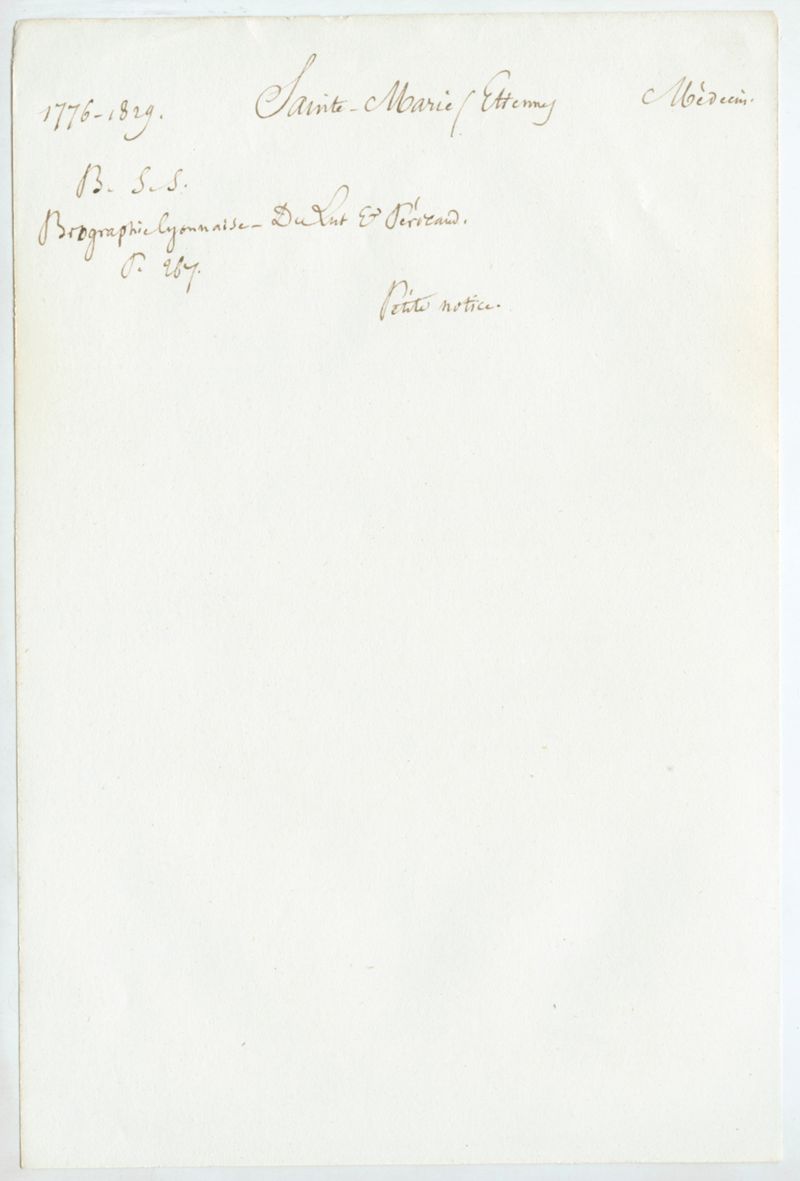 1776-1829. Sainte-Marie (Etienne) Médecin.
B. S. S.
Biographie lyonnaise - Du Lut & Péricaud.
P. 267.
Pétite notice.